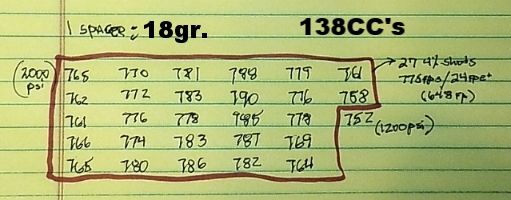 1 SPACER: 18gr. 138CC's
(2000 psi) 765 770 781 788 779 761 → 27 4% shots
762 772 783 790 776 758 775fps/24fpe+
761 776 778 785 778 752 (648fp)
766 774 783 787 769 (1200psi)
765 780 786 782 764